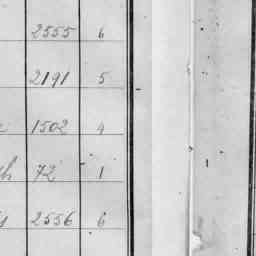 2555 6
2191 5
1502 4
72 1
2556 6